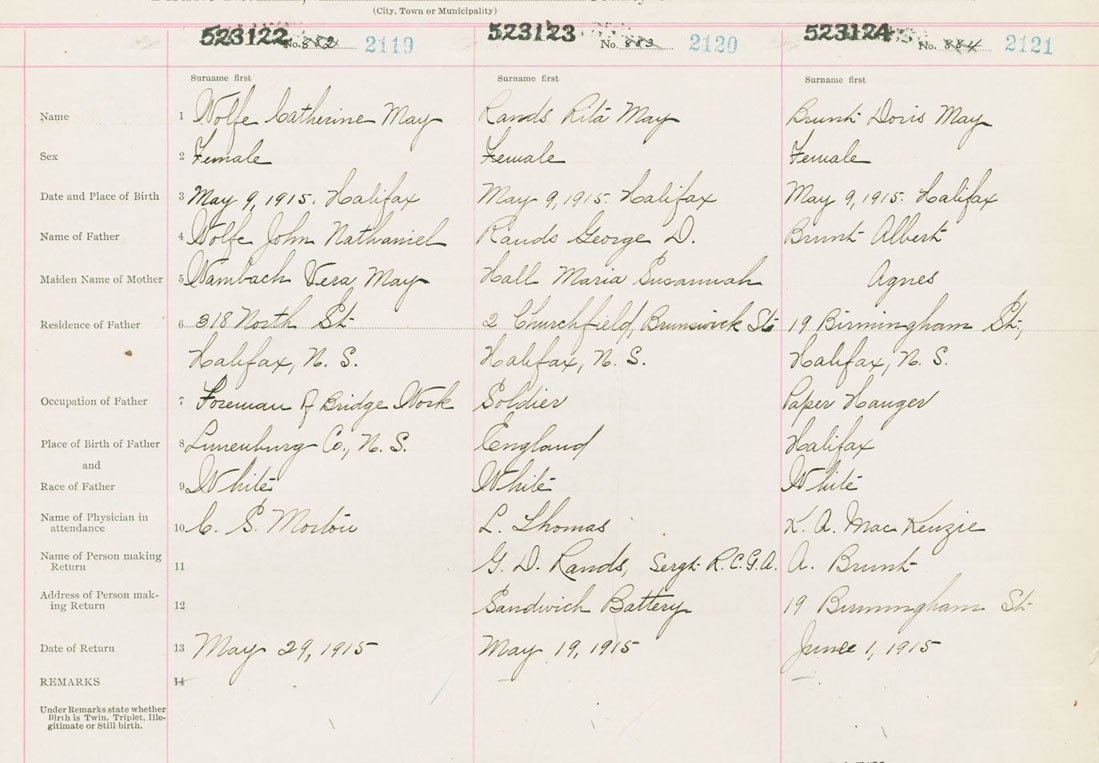 (City, Town or Municipality)
523122 No. 882 2119 523123 No. 883 2120 523124 No. 884 2121
Surname first Surname first Surname first
Name 1 Wolfe Catherine May Rands Rita May Brunt Doris May
Sex 2 Female Female Female
Date and Place of Birth 3 May 9, 1915. Halifax May 9, 1915. Halifax May 9, 1915. Halifax
Name of Father 4 Wolfe John Nathaniel Rands George D. Brunt Albert
Maiden Name of Mother 5 Wambach Vera May Hall Maria Susannah Agnes
Residence of Father 6 318 North St. 2 Churchfield, Brunswick St. 19 Birmingham St.,
Halifax, N. S. Halifax, N. S. Halifax, N. S.
Occupation of Father 7 Foreman of Bridge Work Soldier Paper Hanger
Place of Birth of Father 8 Lunenburg Co., N. S. England Halifax
and
Race of Father 9 White White White
Name of Physician in
attendance 10 C. S. Morton L. Thomas K. A. MacKenzie
Name of Person making
Return 11 G. D. Rands, Sergt. R.C.G.A. A. Brunt
Address of Person mak-
ing Return 12 Sandwich Battery 19 Birmingham St.
Date of Return 13 May 29, 1915 May 19, 1915 June 1, 1915
REMARKS 14
Under Remarks state whether
Birth is Twin, Triplet, Ille-
gitimate or Still birth.